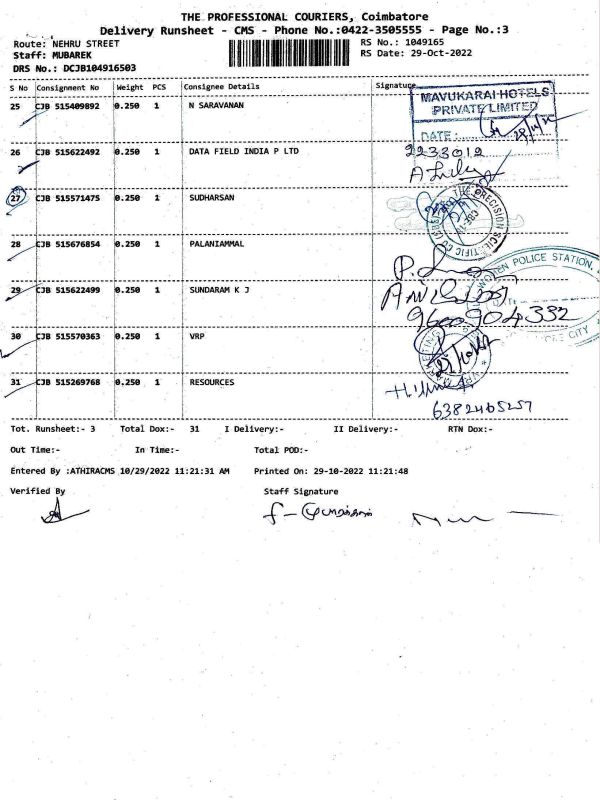 THE PROFESSIONAL COURIERS, Coimbatore
Delivery Runsheet - CMS - Phone No.:0422-3505555 - Page No.:3
Route: NEHRU STREET
RS No.: 1049165
Staff: MUBAREK
RS Date: 29-Oct-2022
DRS No.: DCJB104916503
S No Consignment No Weight PCS Consignee Details Signature
25 CJB 515409892 0.250 1 N SARAVANAN
MAVUKARAI HOTELS
PRIVATE LIMITED
DATE :
26 CJB 515622492 0.250 1 DATA FIELD INDIA P LTD 2233012
27 CJB 515571475 0.250 1 SUDHARSAN
THE PRECISION SCIENTIFIC CO
28 CJB 515676854 0.250 1 PALANIAMMAL
POLICE STATION,
29 CJB 515622499 0.250 1 SUNDARAM K J
9600904332
CITY
30 CJB 515570363 0.250 1 VRP
31 CJB 515269768 0.250 1 RESOURCES
6382465257
Tot. Runsheet:- 3 Total Dox:- 31 I Delivery:- II Delivery:- RTN Dox:-
Out Time:- In Time:- Total POD:-
Entered By :ATHIRACMS 10/29/2022 11:21:31 AM Printed On: 29-10-2022 11:21:48
Verified By Staff Signature